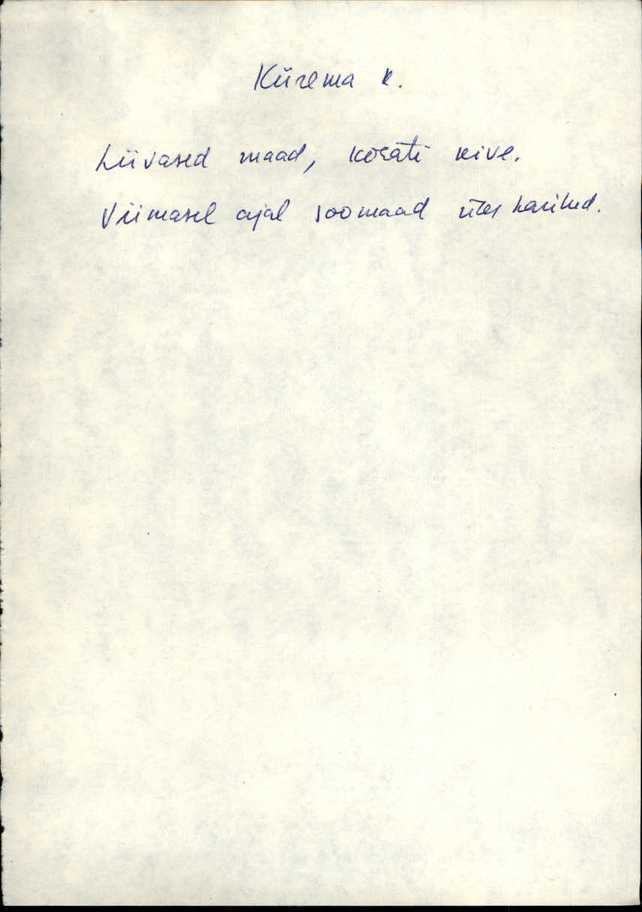 Kiirema k.
Liivased maad, kohati kive.
Viimasel ajal soomaad üles haritud.